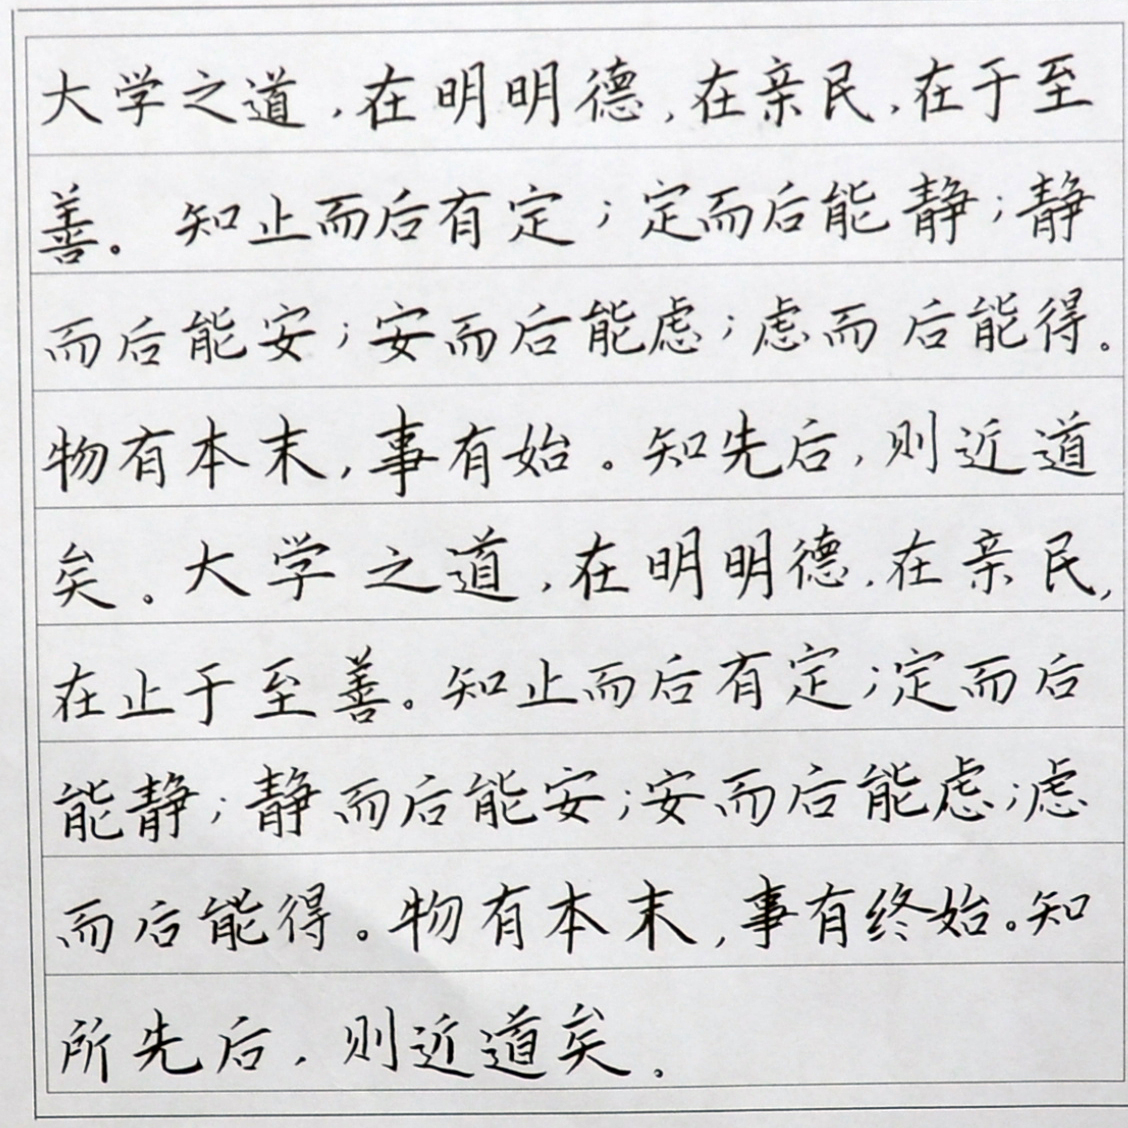 大学之道,在明明德,在亲民,在于至
善。知止而后有定;定而后能静;静
而后能安;安而后能虑;虑而后能得。
物有本末,事有始。知先后,则近道
矣。大学之道,在明明德,在亲民,
在止于至善。知止而后有定;定而后
能静;静而后能安;安而后能虑;虑
而后能得。物有本末,事有终始。知
所先后,则近道矣。